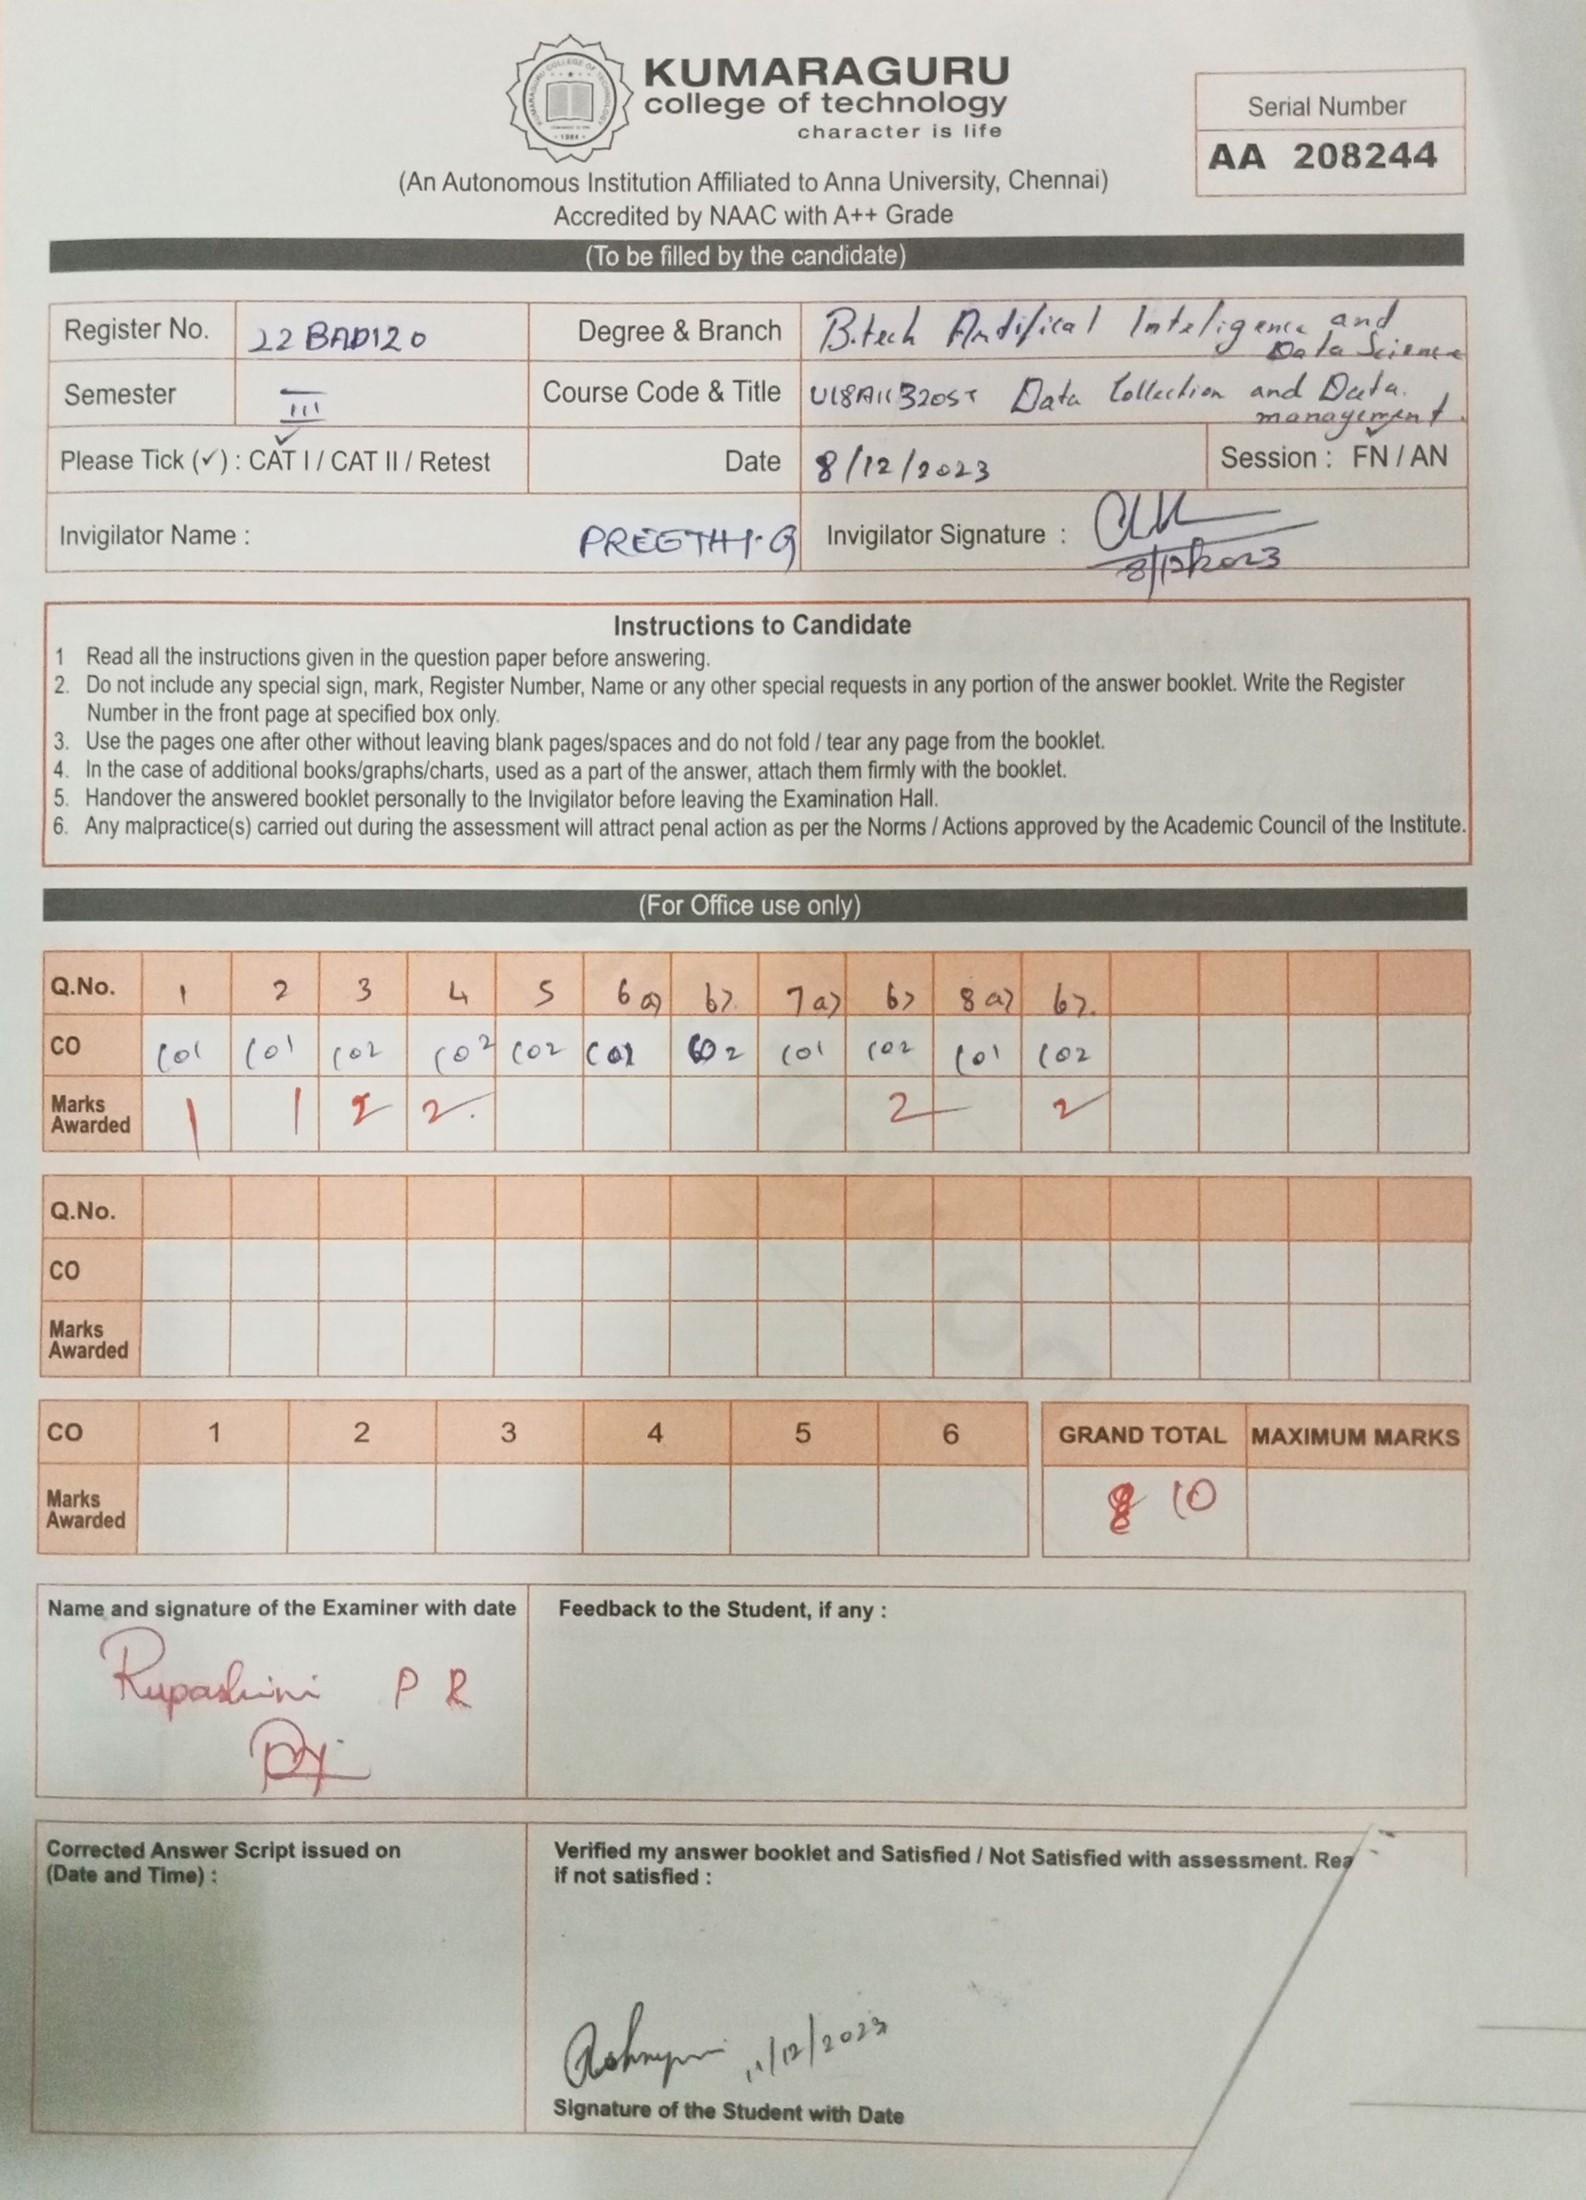 KUMARAGURU
college of technology
character is life
(An Autonomous Institution Affiliated to Anna University, Chennai)
Accredited by NAAC with A++ Grade
Serial Number
AA 208244
(To be filled by the candidate)
Register No. 22BAD120 Degree & Branch B.tech Artifical Inteligence and Data Science
Semester III Course Code & Title Data Collection and Data management
Please Tick (✓) : CAT I / CAT II / Retest Date 8/12/2023 Session : FN / AN
Invigilator Name : PREETHI.G Invigilator Signature : 8/12/2023
Instructions to Candidate
1 Read all the instructions given in the question paper before answering.
2. Do not include any special sign, mark, Register Number, Name or any other special requests in any portion of the answer booklet. Write the Register
Number in the front page at specified box only.
3. Use the pages one after other without leaving blank pages/spaces and do not fold / tear any page from the booklet.
4. In the case of additional books/graphs/charts, used as a part of the answer, attach them firmly with the booklet.
5. Handover the answered booklet personally to the Invigilator before leaving the Examination Hall.
6. Any malpractice(s) carried out during the assessment will attract penal action as per the Norms / Actions approved by the Academic Council of the Institute.
(For Office use only)
Q.No. 1 2 3 4 5 6 a) b) 7 a) b) 8 a) b)
CO CO1 CO1 CO2 CO2 CO2 CO2 CO1 CO2 CO1 CO2
Marks Awarded 1 1 2 2 2 2
Q.No.
CO
Marks Awarded
CO 1 2 3 4 5 6 GRAND TOTAL MAXIMUM MARKS
Marks Awarded 10
Name and signature of the Examiner with date
Rupashini P R
Feedback to the Student, if any :
Corrected Answer Script issued on
(Date and Time) :
Verified my answer booklet and Satisfied / Not Satisfied with assessment. Rea
if not satisfied :
11/12/2023
Signature of the Student with Date